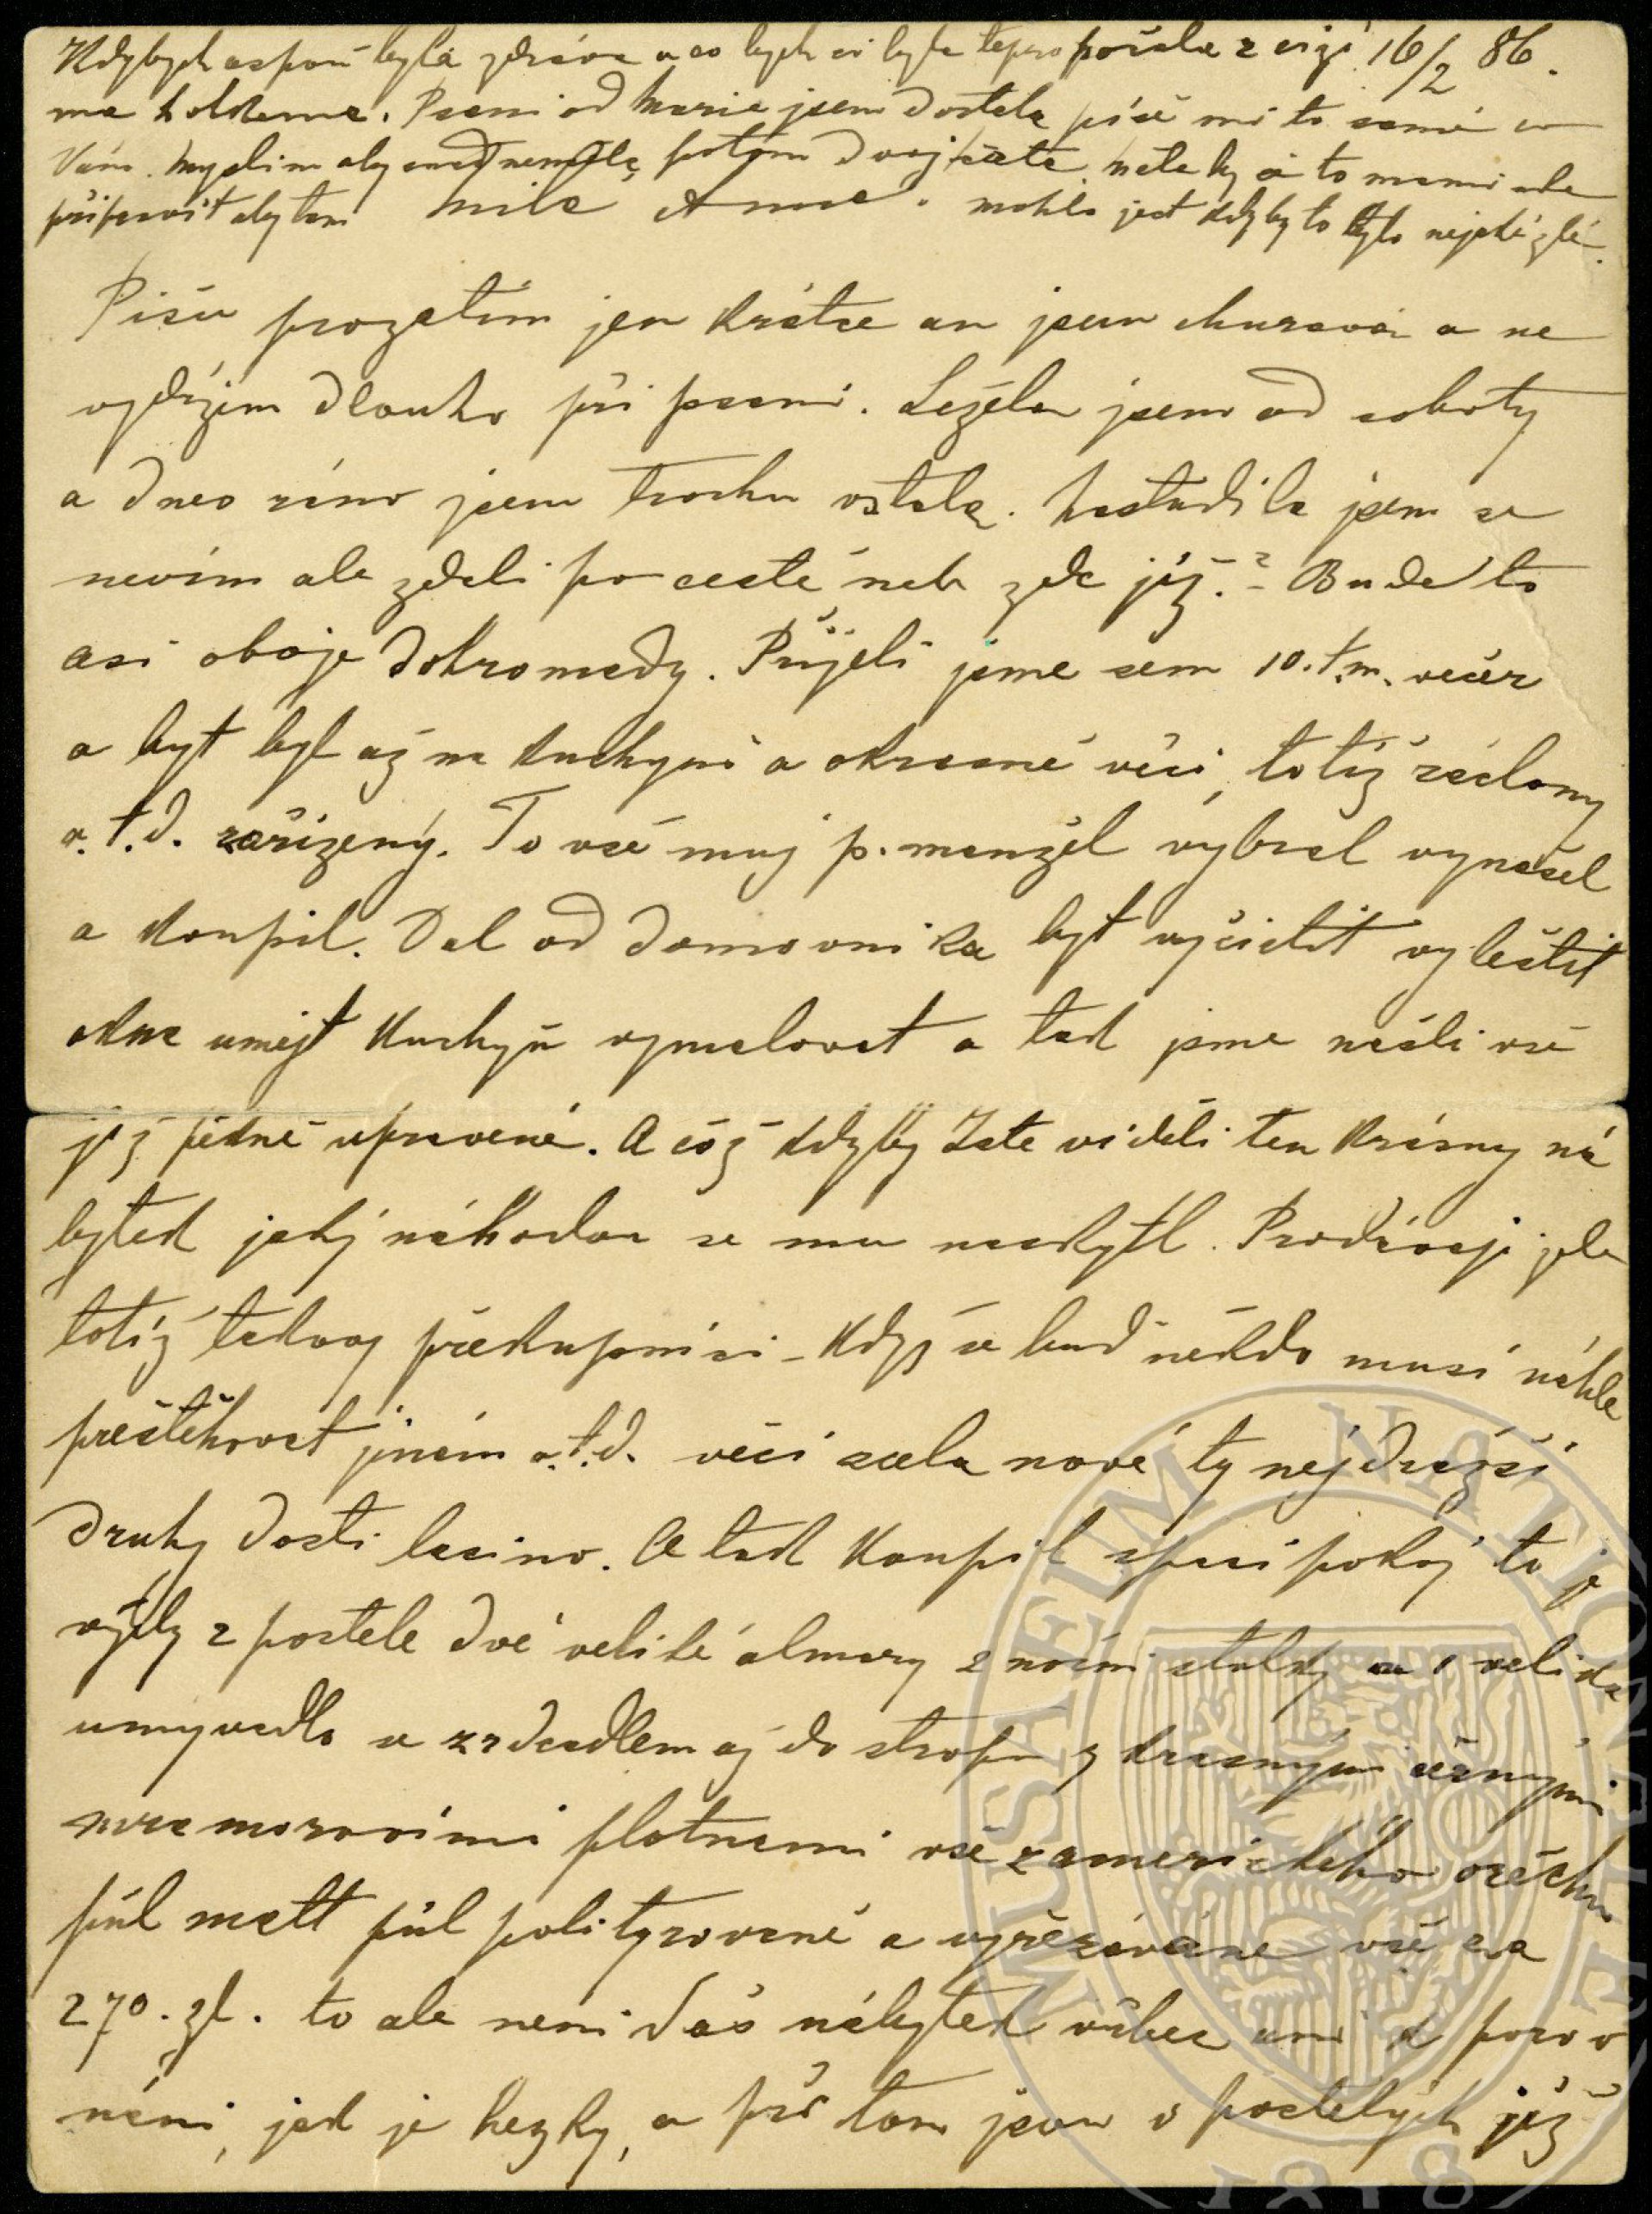 Kdybych aspoň byla zdráva a co bych si byla teprv počala z cizí 16/2 86.
ma holkama. Psaní od Marie jsem dostala píše mi to samé co
Vám. Myslím aby snad neměla potom dvojčata měla by si to mami ale
připravit aby tam Milá Anna! mohla jest kdyby to bylo nejaké zlé.
Píšu prozatím jen krátce an jsem churavá a ne
vydržím dlouho při psaní. Ležela jsem od soboty
a dnes ráno jsem trochu vstala. Nastudila jsem se
nevím ale zdali po cestě neb zde již.? Bude to
asi oboje dohromady. Přijeli jsme sem 10. t.m. večer
a byt byl až na kuchyni a okrasné věci, totiž záclony
a.t.d. zařízený. To vše muj p. manžel vybral vynašel
a koupil. Dal od domovnika byt vyčistit vyleštit
okna umejt kuchyň vymalovat a tak jsme našli vše
již pěkně upravené. A což kdyby Jste viděli ten krásny ná
bytek jaký náhodou se mu naskytl. Prodávají zde
totiž takovy překupníci - když se buď někdo musí náhle
přestěhovat jinám a.t.d. věci zcela nové ty nejdražší
druhy dosti lacino. A tak koupil spací pokoj to je
vždy 2 postele dvě veliké almary 2 noční stolky a 1 veliké
umyvadlo se zrdcadlem až do stropu z krasnými černými
mramorovími plotnami vše z amerického ořechu
půl matt půl polityrované a vyřezávané vše za
270. zl. to ale neni Váš nábytek vůbec ani k porov
náni, jak je hezky, a při tom jsou v postelých již
MUSAEUM NATIONALE
1818